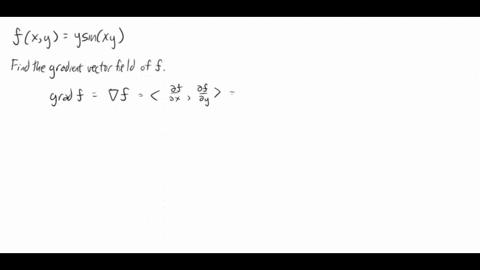 f(x,y) = ysin(xy)
Find the gradient vector field of f.
grad f = ∇f = < ∂f/∂x , ∂f/∂y > =